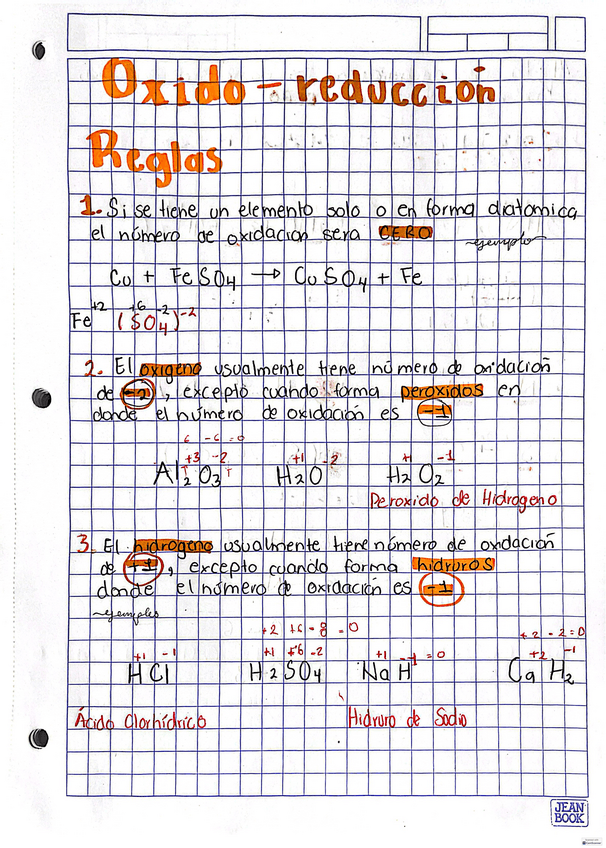 Oxido - reducción
Reglas
1. Si se tiene un elemento solo o en forma diatomica
el número de oxidación sera CERO
ejemplo
Cu + FeSO4 → CuSO4 + Fe
+2 +6 -2
Fe (SO4)-2
2. El oxigeno usualmente tiene número de oxidación
de -2, excepto cuando forma peroxidos en
donde el número de oxidación es -1
6 -6 = 0
+3 -2 +1 -2 +1 -1
Al2O3 H2O H2O2
Peroxido de Hidrogeno
3. El hidrogeno usualmente tiene número de oxidación
de +1, excepto cuando forma hidruros
donde el número de oxidación es -1
ejemplos
+2 +6 -8 = 0 +2 -2 = 0
+1 -1 +1 +6 -2 +1 -1 = 0 +2 -1
HCl H2SO4 NaH CaH2
Ácido Clorhídrico Hidruro de Sodio
JEAN
BOOK